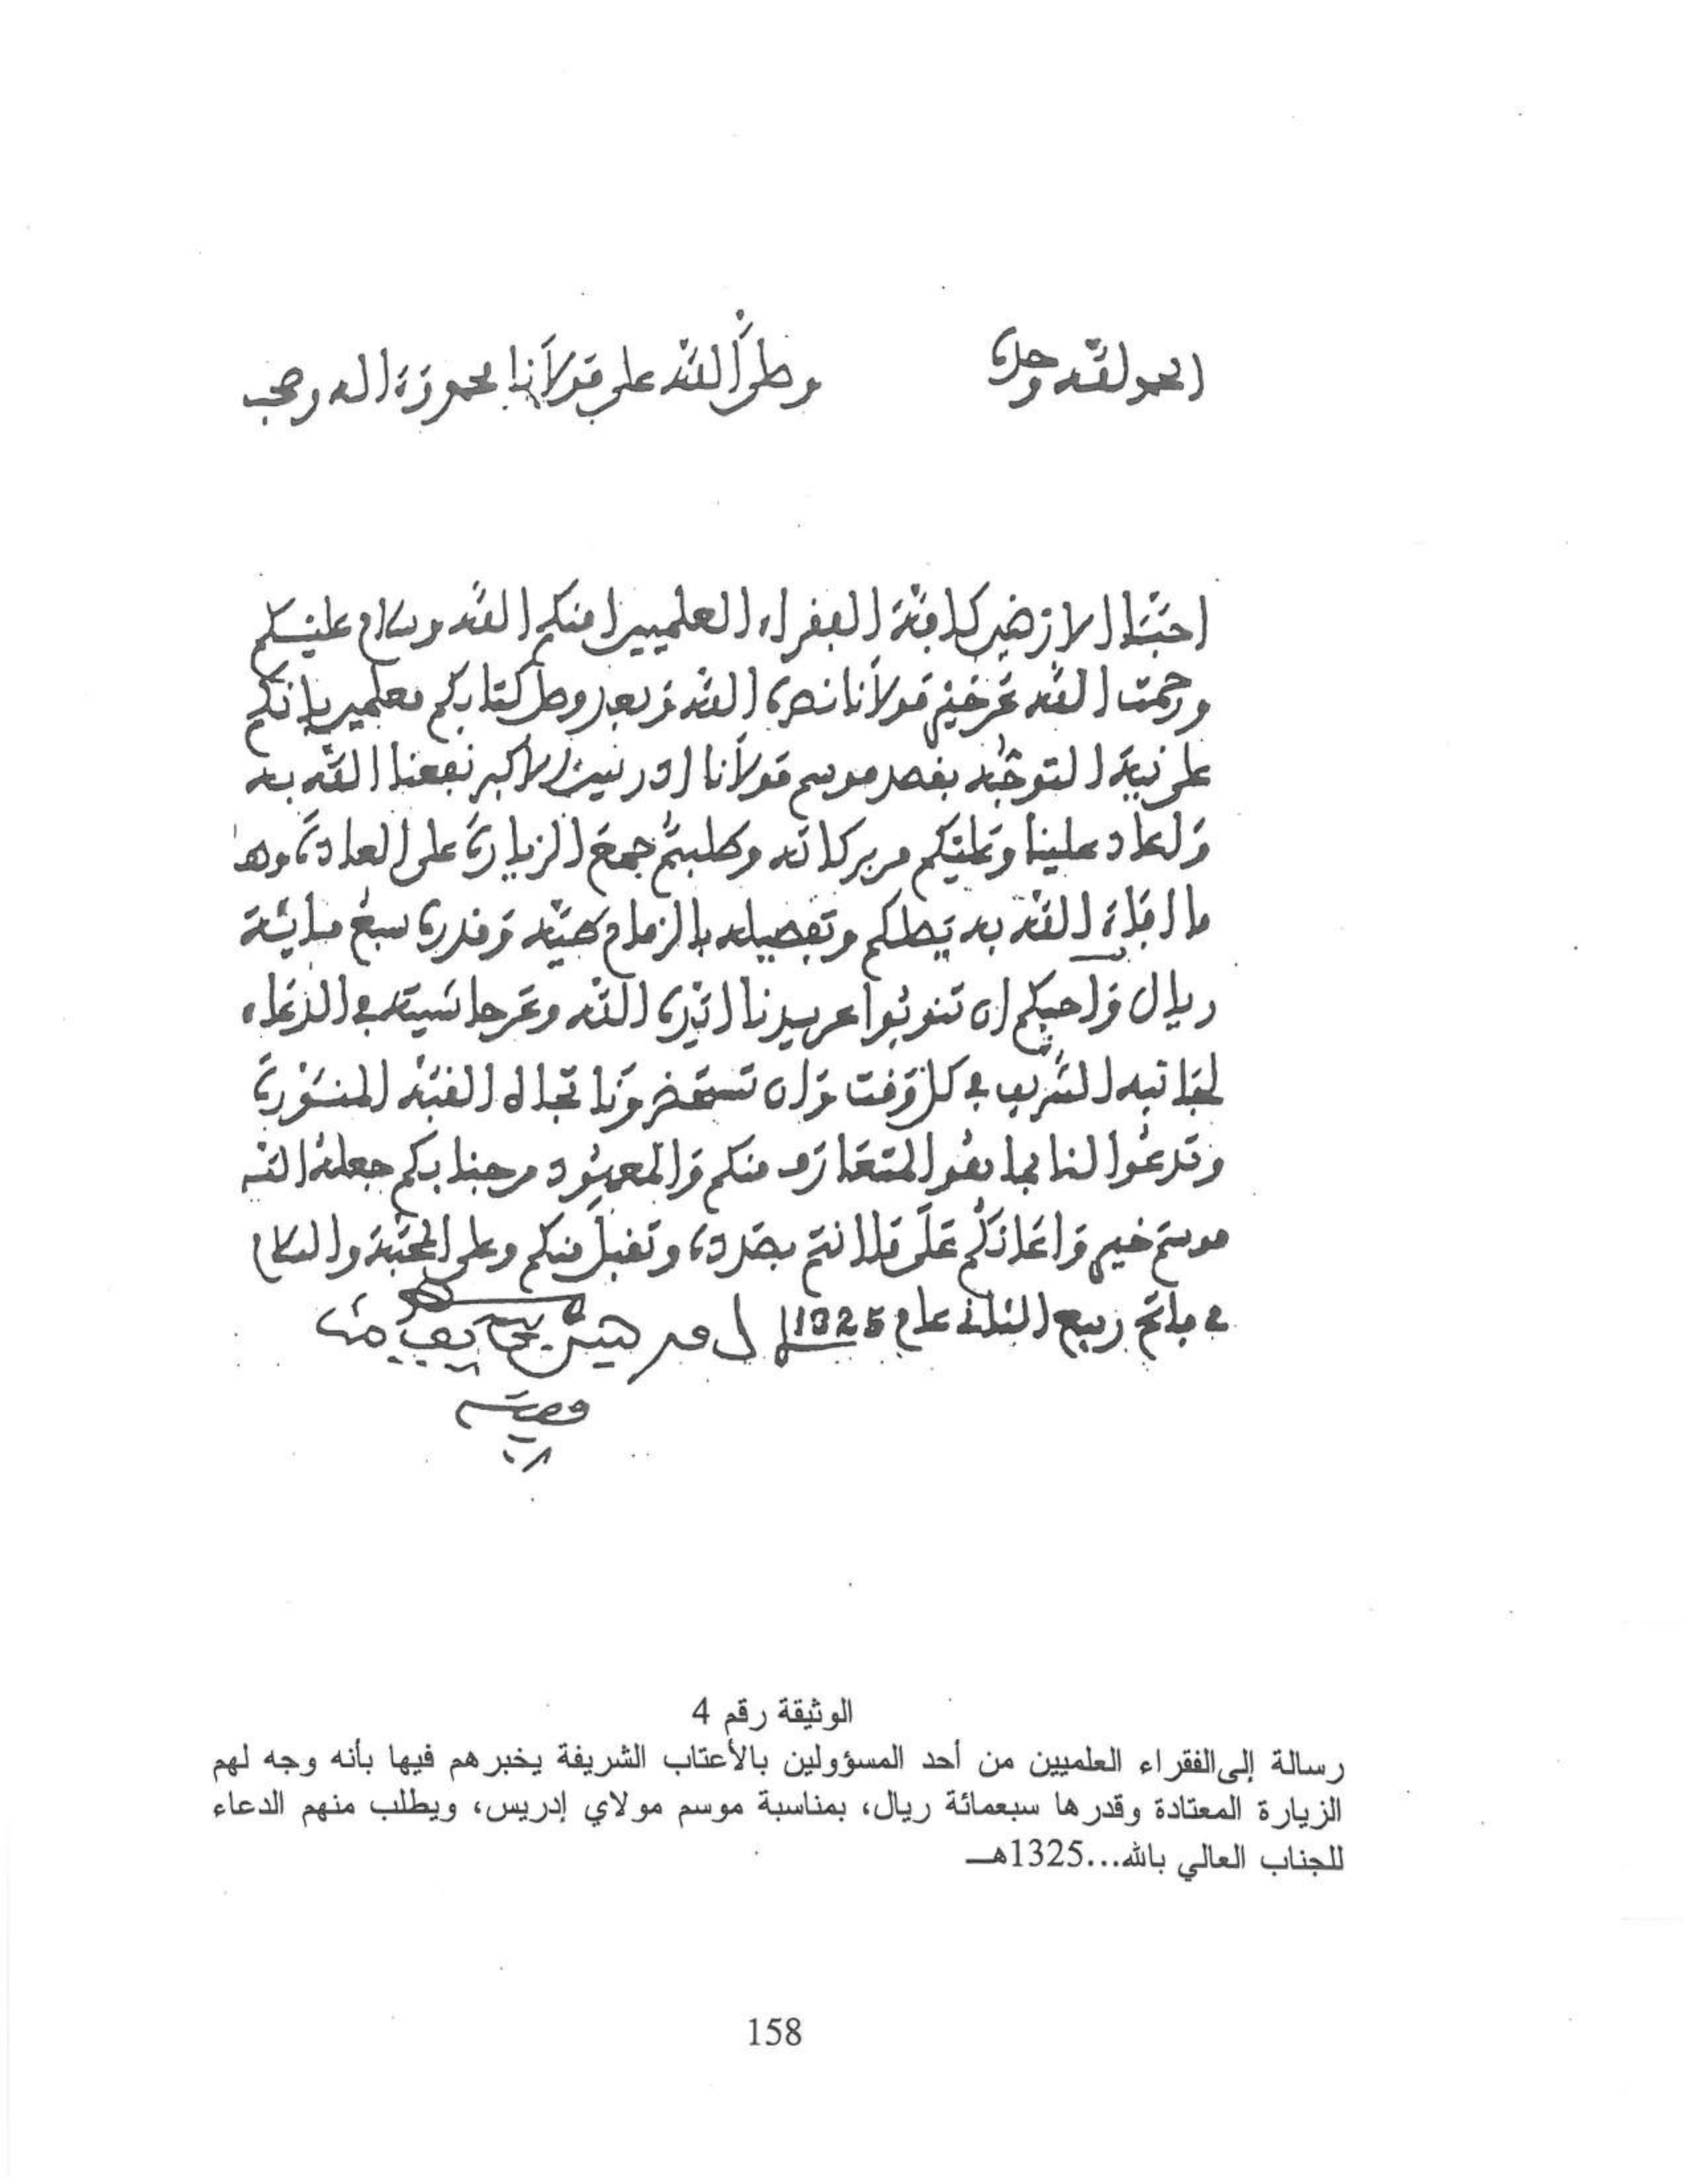 الحمد لله وحده وصلى الله على مولانا محمد وءاله وصحبه
احبتنا الارضين كافة الفقراء العلميين امنكم الله وسلام عليكم
ورحمت الله عن خير مولانا نصره الله وبعد وصل كتابكم معلمين بانكم
على نية التوجه بقصد موسم مولانا ادريس الاكبر نفعنا الله به
واعاد علينا وعليكم من بركاته وطلبتم جمع الزيارة على العادة وها
ما افاء الله به يصلكم وتفصيله بالزمام طيه وقدره سبع مائة
ريال واحبكم ان تنوبوا عن سيدنا ايده الله وعن حاشيته في الدعاء
لجانبه الشريف في كل وقت وان تستحضرونا تجاه القبة المنورة
وتدعوا لنا بما هو المتعارف منكم والمعهود من جنابكم جعله الله
موسم خير واعانكم على ما انتم بصدده وتقبل منكم وعلى المحبة والسلام
في فاتح ربيع الثاني عام 1325
الوثيقة رقم 4
رسالة إلى الفقراء العلميين من أحد المسؤولين بالأعتاب الشريفة يخبرهم فيها بأنه وجه لهم
الزيارة المعتادة وقدرها سبعمائة ريال، بمناسبة موسم مولاي إدريس، ويطلب منهم الدعاء
للجناب العالي بالله...1325هـ
158